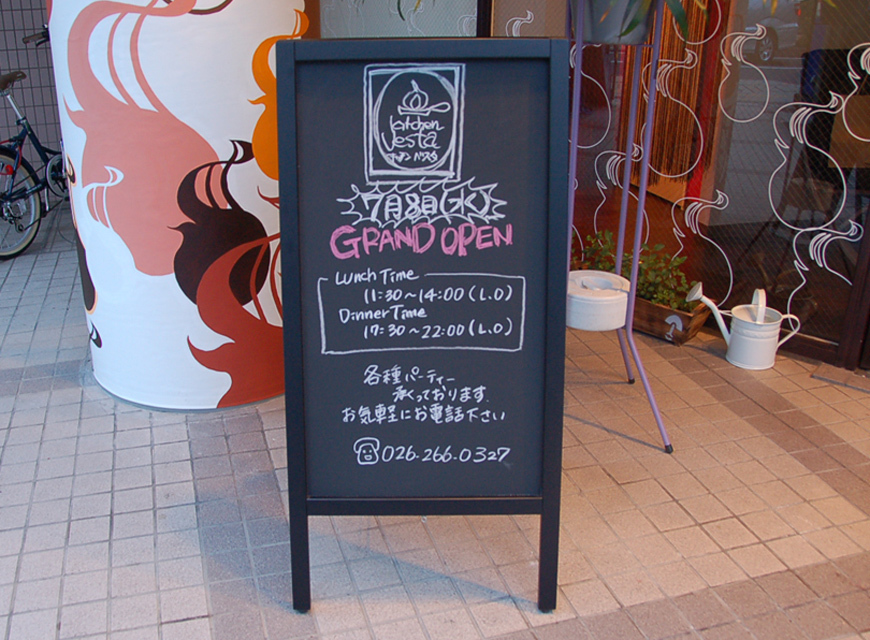 kitchen
Vesta
キッチン バスタ
7月8日(水)
GRAND OPEN
Lunch Time
11:30〜14:00(L.O)
Dinner Time
17:30〜22:00(L.O)
各種パーティー
承っております
お気軽にお電話下さい
026-266-0327